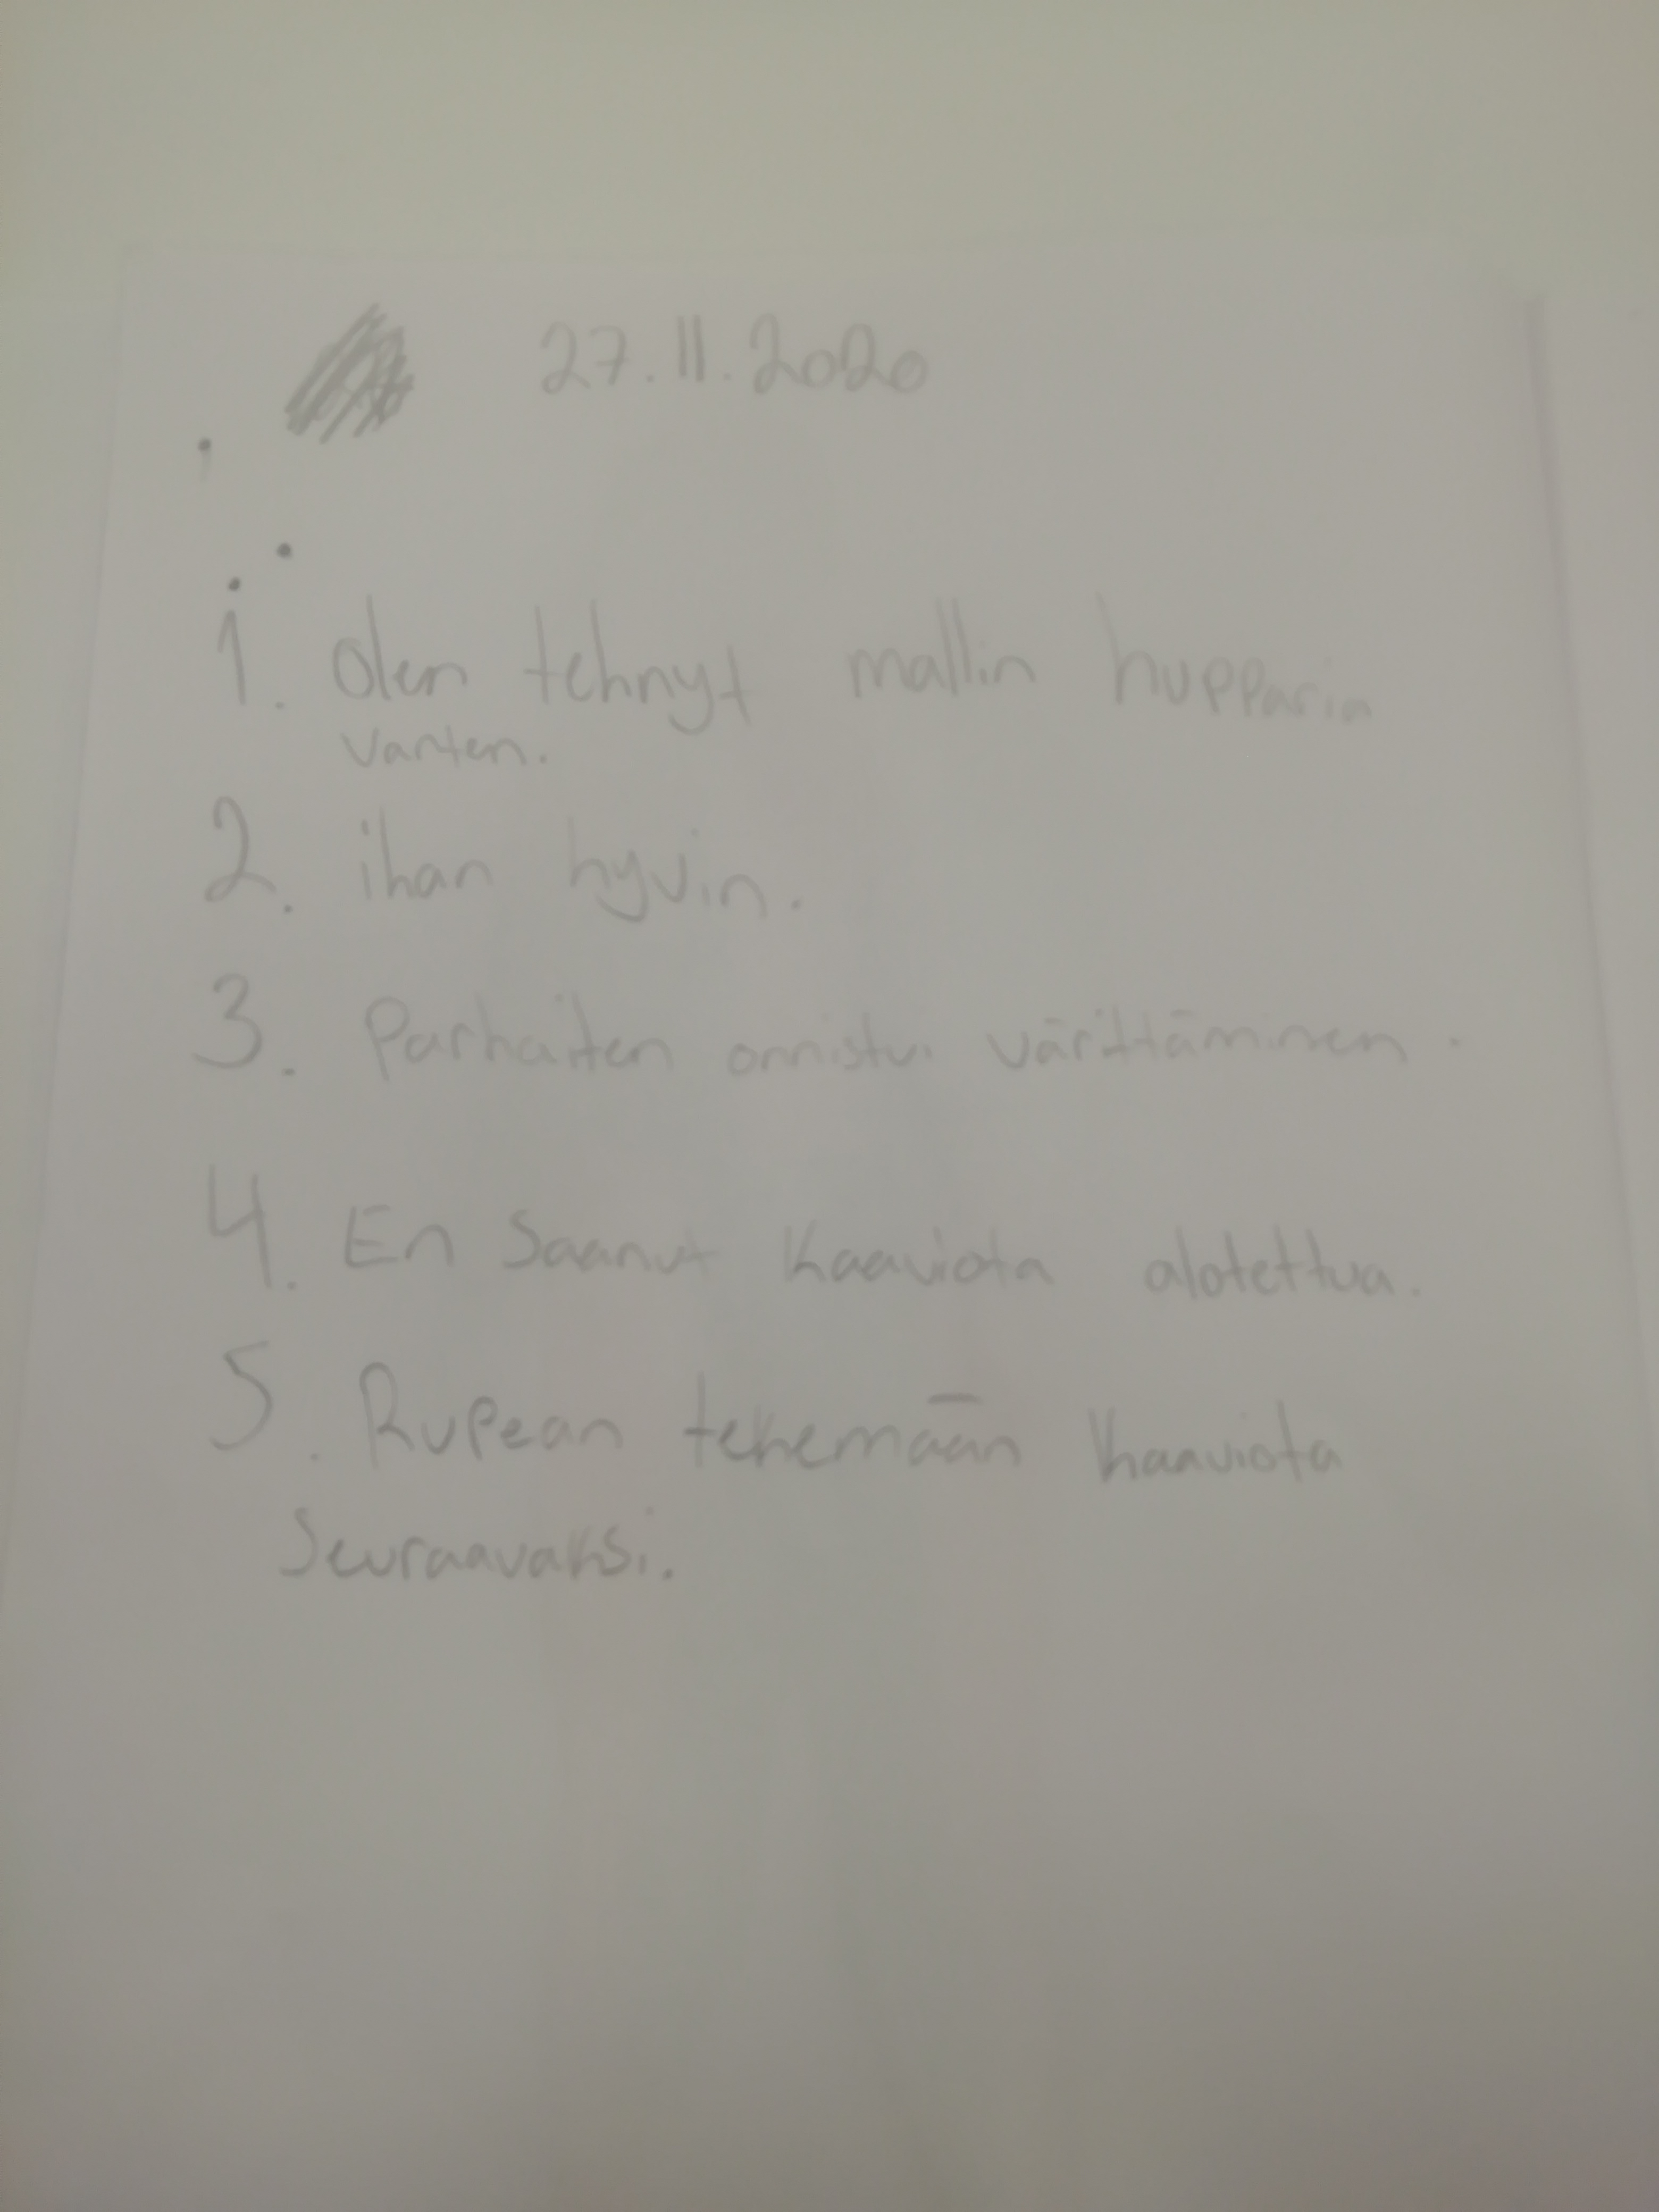 27.11.2020
1. Olen tehnyt mallin hupparia
varten.
2. ihan hyvin.
3. Parhaiten onnistui värittäminen.
4. En Saanut kaaviota alotettua.
5. Rupean tekemään kaaviota
Seuraavaksi.